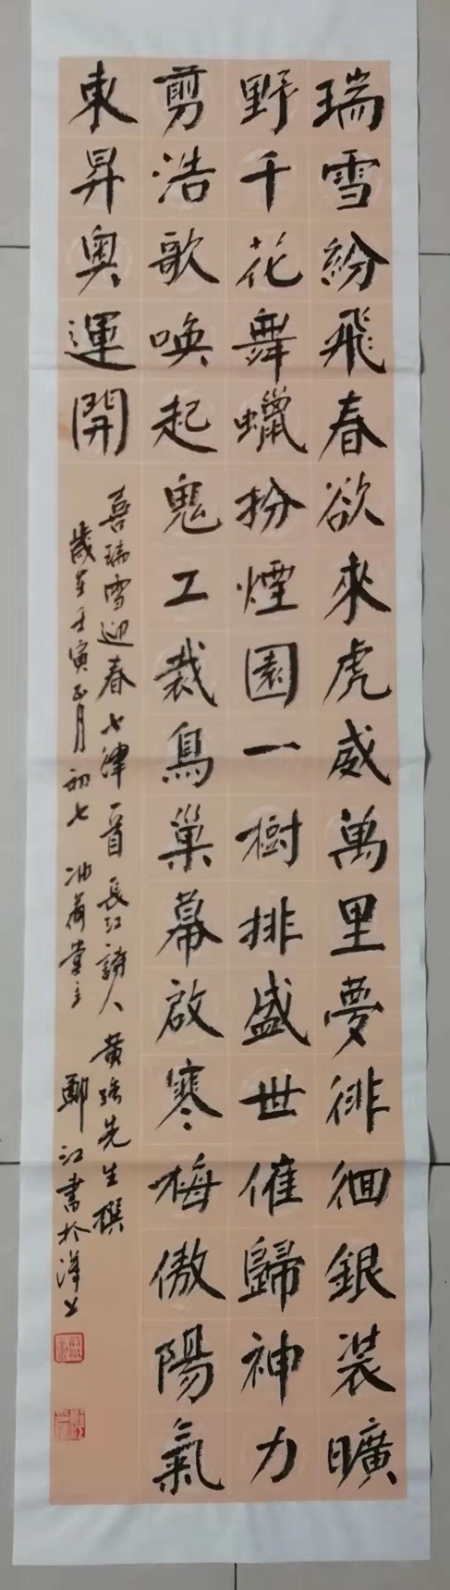 瑞雪紛飛春欲來虎威萬里夢徘徊銀裝曠
野千花舞蠟扮煙園一樹排盛世催歸神力
剪浩歌喚起鬼工裁鳥巢幕啟寒梅傲陽氣
東昇奧運開
喜瑞雪迎春七律一首長江詩人黃強先生撰
歲在壬寅正月初七沖蕎堂主鄭江書於漢上